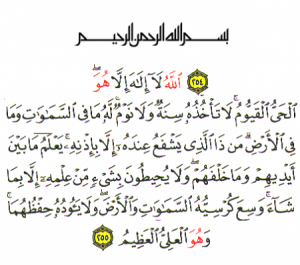 بسم الله الرحمن الرحيم
٢٥٤ اللَّهُ لَآ إِلَٰهَ إِلَّا هُوَ
الْحَىُّ الْقَيُّومُ لَا تَأْخُذُهُ سِنَةٌ وَلَا نَوْمٌ لَّهُ مَا فِى السَّمَٰوَٰتِ وَمَا
فِى الْأَرْضِ مَن ذَا الَّذِى يَشْفَعُ عِندَهُ إِلَّا بِإِذْنِهِ يَعْلَمُ مَا بَيْنَ
أَيْدِيهِمْ وَمَا خَلْفَهُمْ وَلَا يُحِيطُونَ بِشَىْءٍ مِّنْ عِلْمِهِ إِلَّا بِمَا
شَآءَ وَسِعَ كُرْسِيُّهُ السَّمَٰوَٰتِ وَالْأَرْضَ وَلَا يَـُٔودُهُ حِفْظُهُمَا
وَهُوَ الْعَلِىُّ الْعَظِيمُ ٢٥٥